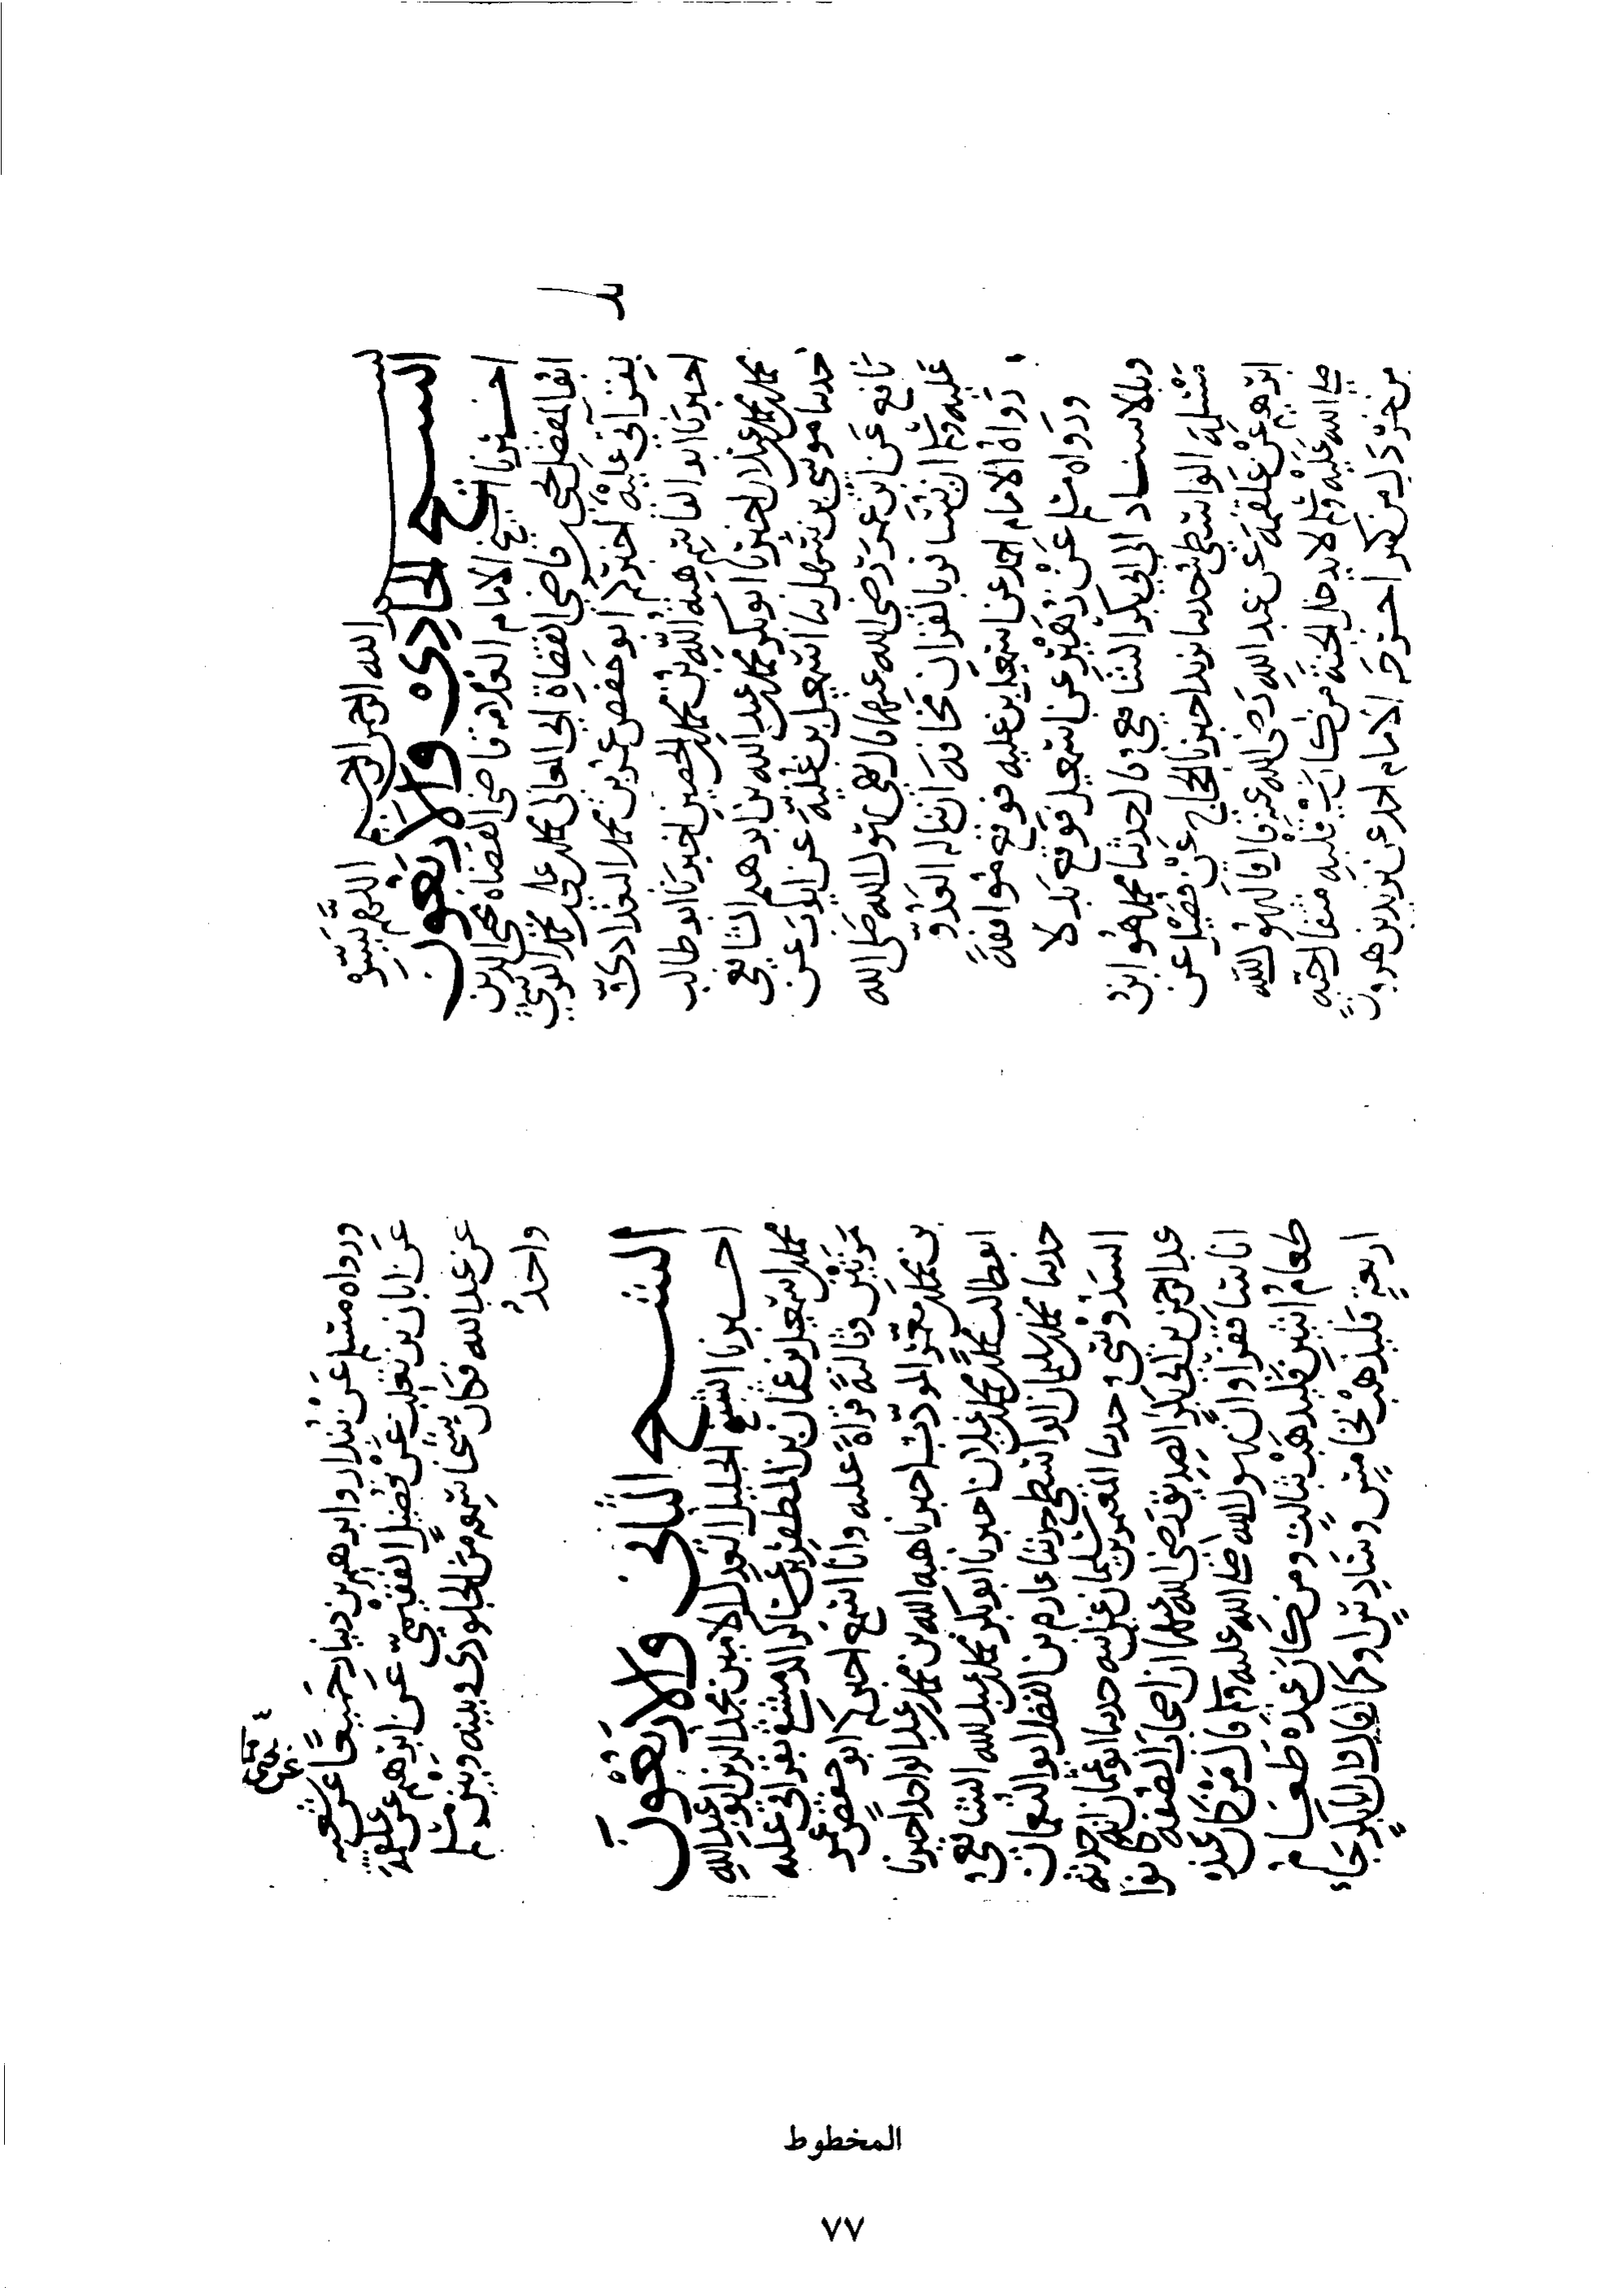 بسم الله الرحمن الرحيم اللهم يسر
الشيخ الحادي والاربعون
اخبرنا الشيخ الامام العلامة قاضي القضاة محيي الدين
ابو المفضل يحيى بن قاضي القضاة ابي المعالي محمد بن علي بن محمد القرشي
بقراتي عليه اخبركم ابو حفص عمر بن محمد البغدادي
اخبرنا ابو القاسم هبة الله بن محمد بن الحصين اخبرنا ابو طالب
محمد بن محمد بن غيلان اخبرنا ابو بكر محمد بن عبد الله بن ابرهيم الشافعي
حدثنا موسى بن سهل بنا اسمعيل بن علية عن ايوب عن
نافع عن ابن عمر رضي الله عنهما قال نهى رسول الله صلى الله
عليه وسلم ان يسافر بالقران مخافة ان يناله العدو
رواه الامام احمد عن اسمعيل بن علية فوقع موافقة
ورواه مسلم عن زهير عن اسمعيل فوقع بدلا
وبالاسناد الى ابي بكر الشافعي قال حدثنا محمد هو ابن
مسلمة الواسطي حدثنا يزيد اخبرنا الحجاج عن فضيل عن
ابرهيم عن علقمة عن عبد الله رضي الله عنه قال قال رسول الله
صلى الله عليه وسلم لا يدخل الجنة من كان في قلبه مثقال حبة
من خردل من كبر اخرجه الامام احمد عن يزيد بن هرون
ورواه مسلم عن بندار وابرهيم بن دينار جميعا عن شعبه
عن ابان بن تغلب عن فضيل الفقيمي عن ابرهيم عن علقمة
عن عبد الله فكان شيخنا سمعه من الجلودي وبينه وبين مسلم
واحد
الشيخ الثاني والاربعون
اخبرنا الشيخ الجليل العدل الامين مجد الدين ابو عبد الله
محمد بن اسمعيل بن عثمان بن المظفر بن عساكر الدمشقي بقراتي عليه
مرتين وثالثة قراة عليه وانا اسمع اخبركم ابو حفص عمر
بن محمد بن معمر المودب اخبرنا هبه الله بن محمد بن عبد الواحد اخبرنا
ابو طالب محمد بن محمد بن غيلان اخبرنا ابو بكر محمد بن عبد الله الشافعي
حدثنا محمد بن سليمان الواسطي حدثنا عارم بن الفضل ابو النعمان
السدوسي حدثنا المعتمر بن سليمان عن ابيه حدثنا ابو عثمان انه حدثه
عبد الرحمن بن ابي بكر الصديق رضي الله عنهما ان اصحاب الصفه كانوا
اناسا فقرا وان رسول الله صلى الله عليه وسلم قال من كان عنده
طعام اثنين فليذهب بثالث ومن كان عنده طعام
اربعة فليذهب بخامس وسادس او كما قال وان ابا بكر جاء
المخطوط
٧٧